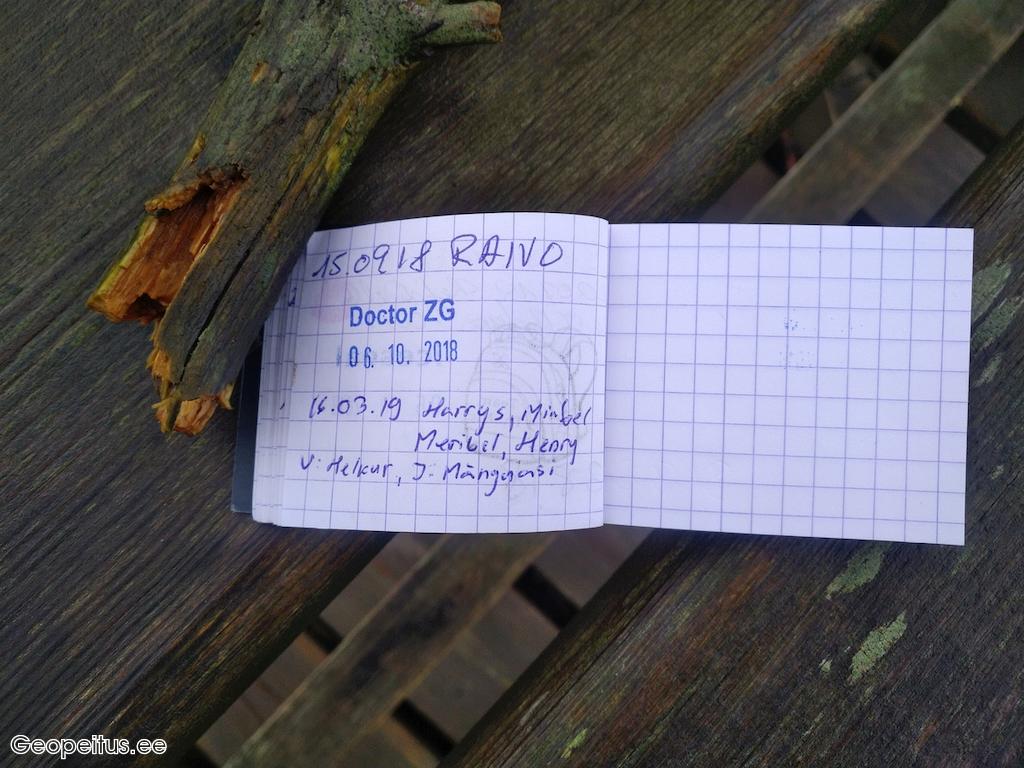 15.09.18 RAIVO
Doctor ZG
06. 10. 2018
16.03.19 Harrys, Miabel
Meribel, Henry
V: Helkur, J: Mänguasi
Geopeitus.ee